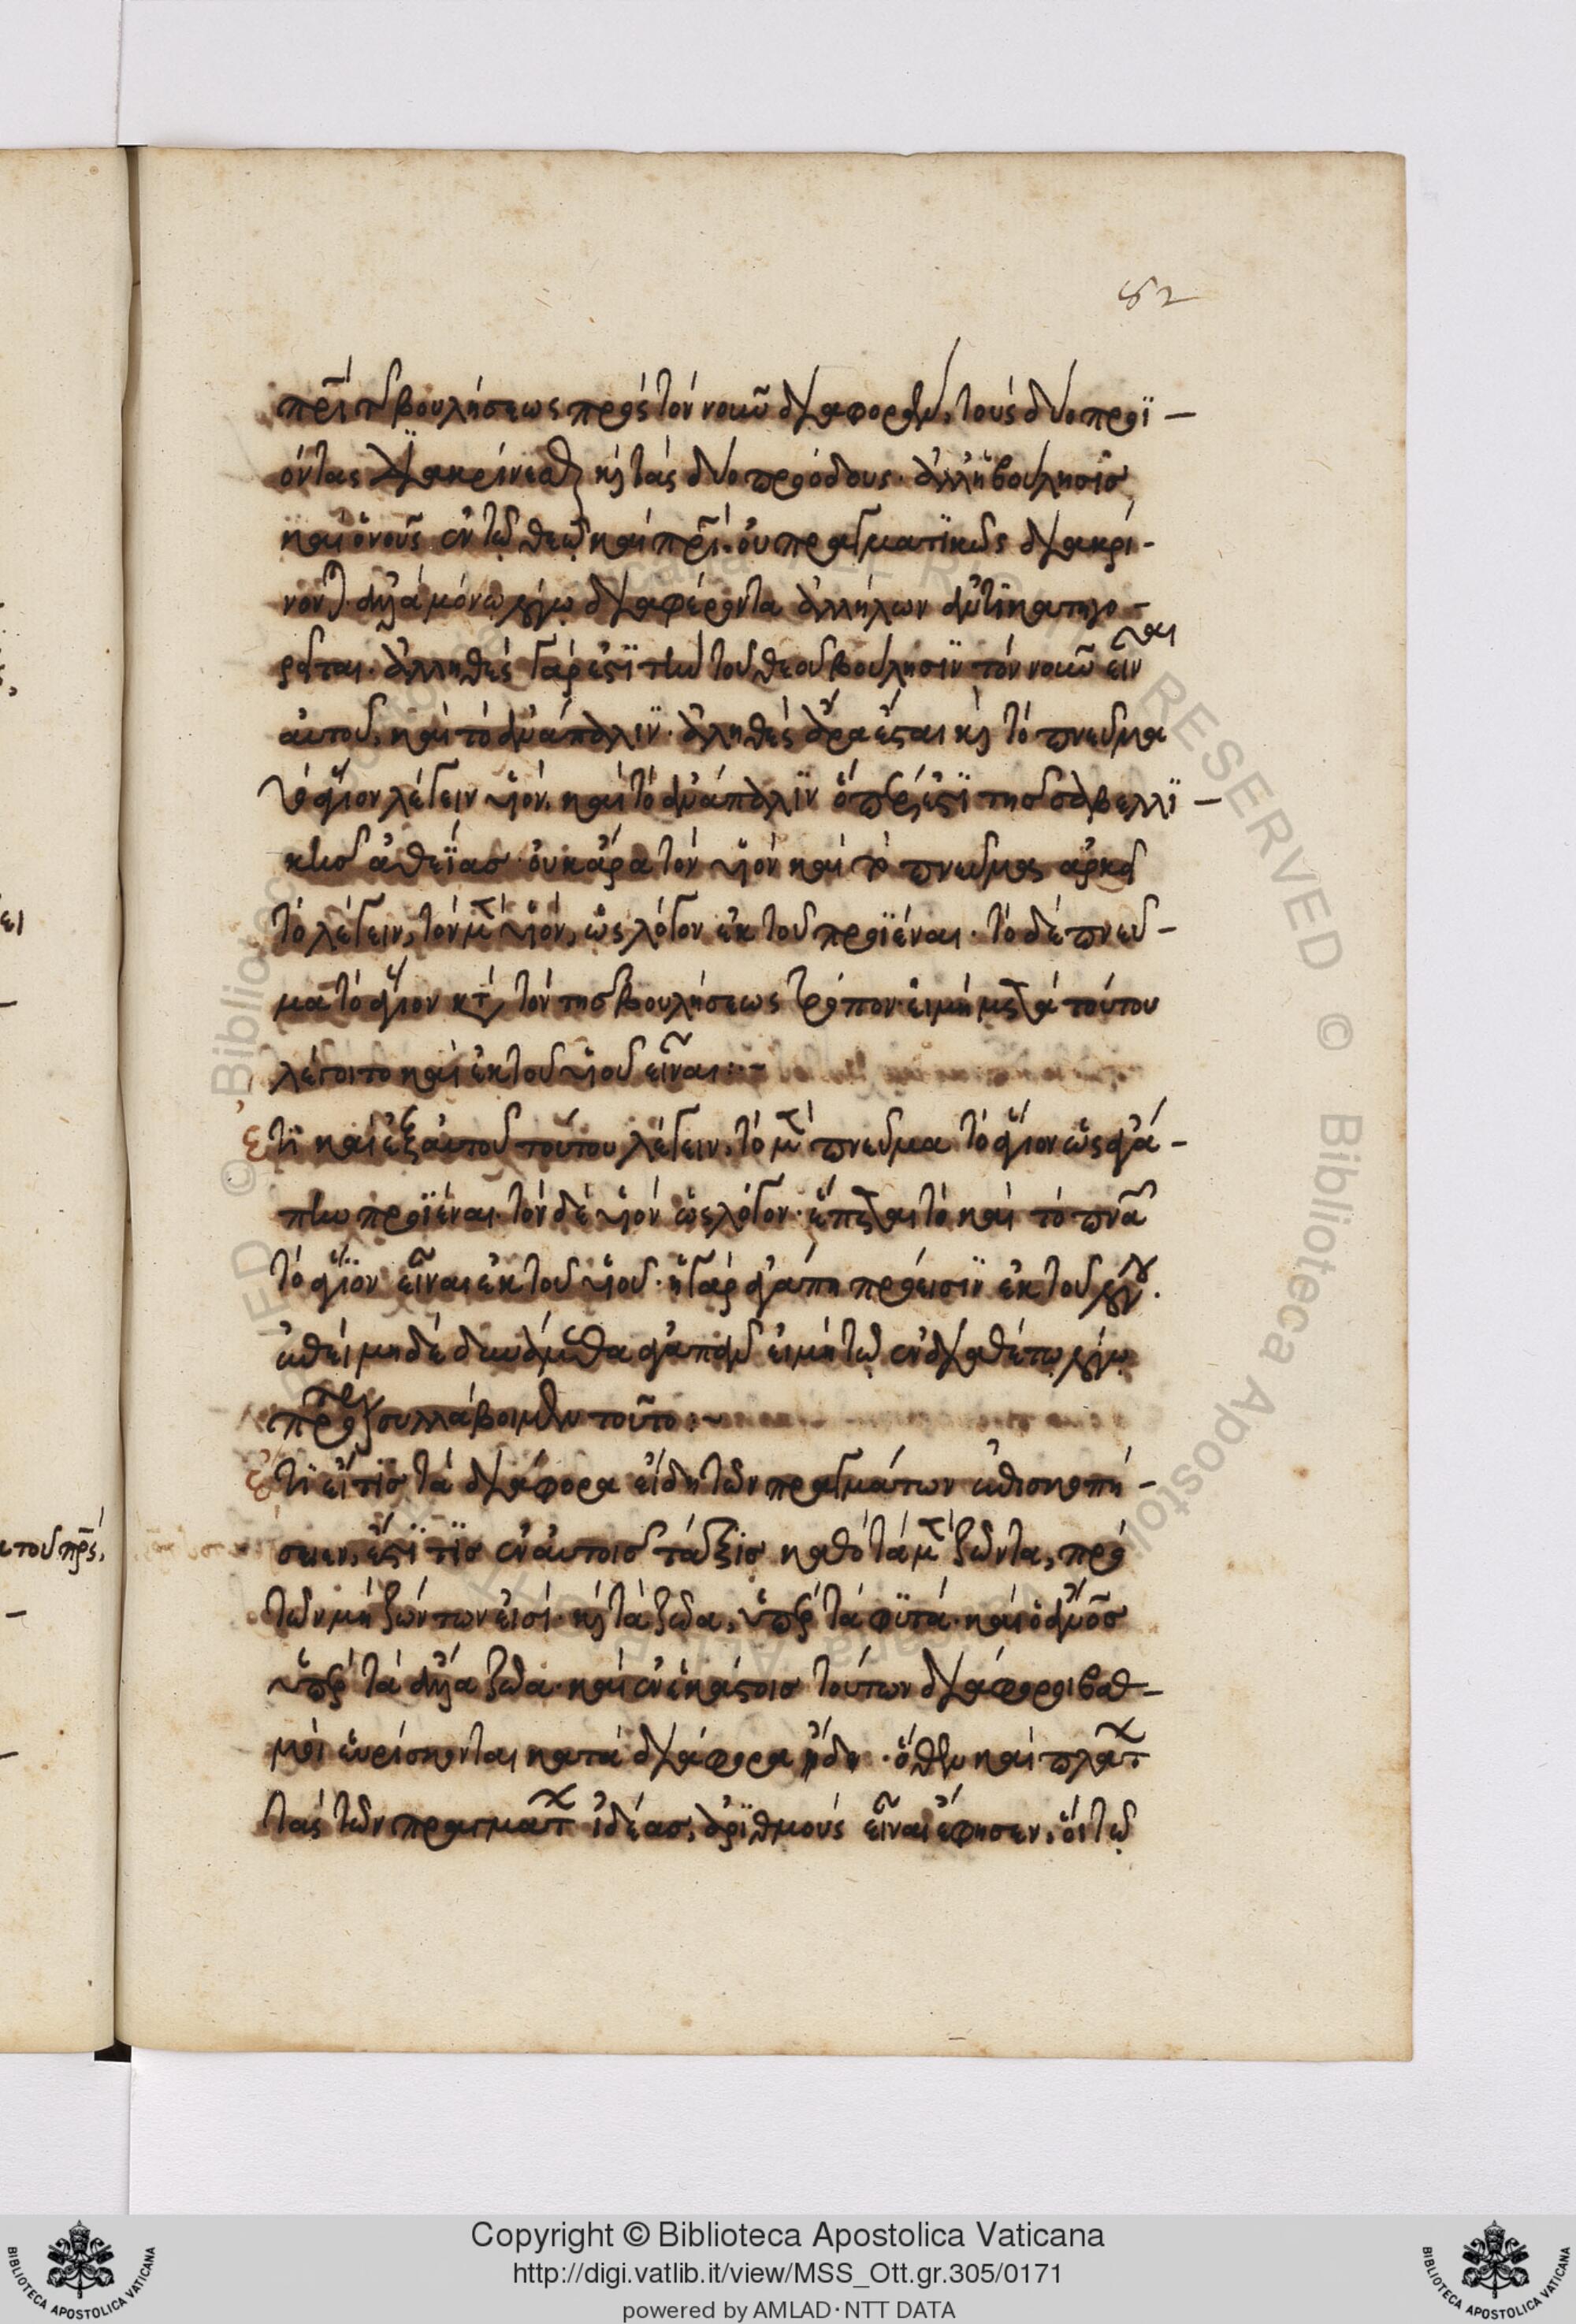 82
πρῒ τ βουλήσεως πρὸς τὸν νοῦν διαφορὰν, τοὺς δύο προϊ-
όντας διακρίνεσθαι κ τὰς δύο προόδους. ἀλλ' ἡ βούλησις
καὶ ὁ νοῦς ἐν τῷ θεῷ καὶ πρῒ. οὐ πραγματικῶς διακρί-
νονται. ἀλλὰ μόνω λόγω διαφέροντα ἀλλήλων ἀντικατηγο-
ρεῖται. ἀληθὲς γάρ ἐστι τὴν τοῦ θεοῦ βούλησιν τὸν νοῦν εἶναι
αὐτοῦ, καὶ τὸ ἀνάπαλιν. ἀληθὲς ἄρα ἔσται κ τὸ πνεῦμα
τὸ ἅγιον λέγειν υἱόν, καὶ τὸ ἀνάπαλιν ὅπερ ἐστὶ τῆς σαβελλι-
κῆς ἀθεΐας. οὐκ ἄρα τὸν υἱὸν καὶ τὸ πνεῦμα, ἀρκεῖ
τὸ λέγειν, τὸν μὲν υἱόν, ὡς λόγον ἐκ τοῦ προϊέναι. τὸ δὲ πνεῦ-
μα τὸ ἅγιον κτ τὸν τῆς βουλήσεως τρόπον. εἰ μὴ μετὰ τούτου
λέγοιτο καὶ ἐκ τοῦ υἱοῦ εἶναι:-
ἔτι καὶ ἐξ αὐτοῦ τούτου λέγειν, τὸ μὲν πνεῦμα τὸ ἅγιον ὡς ἀγά-
πην προϊέναι. τὸν δὲ υἱὸν ὡς λόγον. ἕπεται τὸ καὶ τὸ πνα
τὸ ἅγιον εἶναι ἐκ τοῦ υἱοῦ. ἡ γὰρ ἀγάπη πρόεισιν ἐκ τοῦ λόγου.
ἐπεὶ μηδὲ δυνάμεθα ἀγαπᾶν εἰ μὴ τῷ ἐνδιαθέτω λόγω
πρότερον συλλάβοιμεν τοῦτο:~
ἔτι εἴ τις τὰ διάφορα εἴδη τῶν πραγμάτων ἐπισκοπή-
σειεν, ἔστι τις ἐν αὐτοῖς τάξις καθὸ τὰ μὲν ζῶντα, πρὸ
τῶν μὴ ζώντων εἰσί. κ τὰ ζῶα, ὑπὲρ τὰ φυτά. καὶ ὁ ἀνος
ὑπὲρ τὰ ἄλλα ζῶα. καὶ ἐν ἑκάστοις τούτων διάφοροι βαθ-
μοὶ εὑρίσκονται κατὰ διάφορα εἴδη. ὅθεν καὶ πλάτων
τὰς τῶν πραγμάτων ἰδέας, ἀριθμοὺς εἶναι ἔφησεν, οἳ τῷ
Copyright © Biblioteca Apostolica Vaticana
http://digi.vatlib.it/view/MSS_Ott.gr.305/0171
powered by AMLAD·NTT DATA